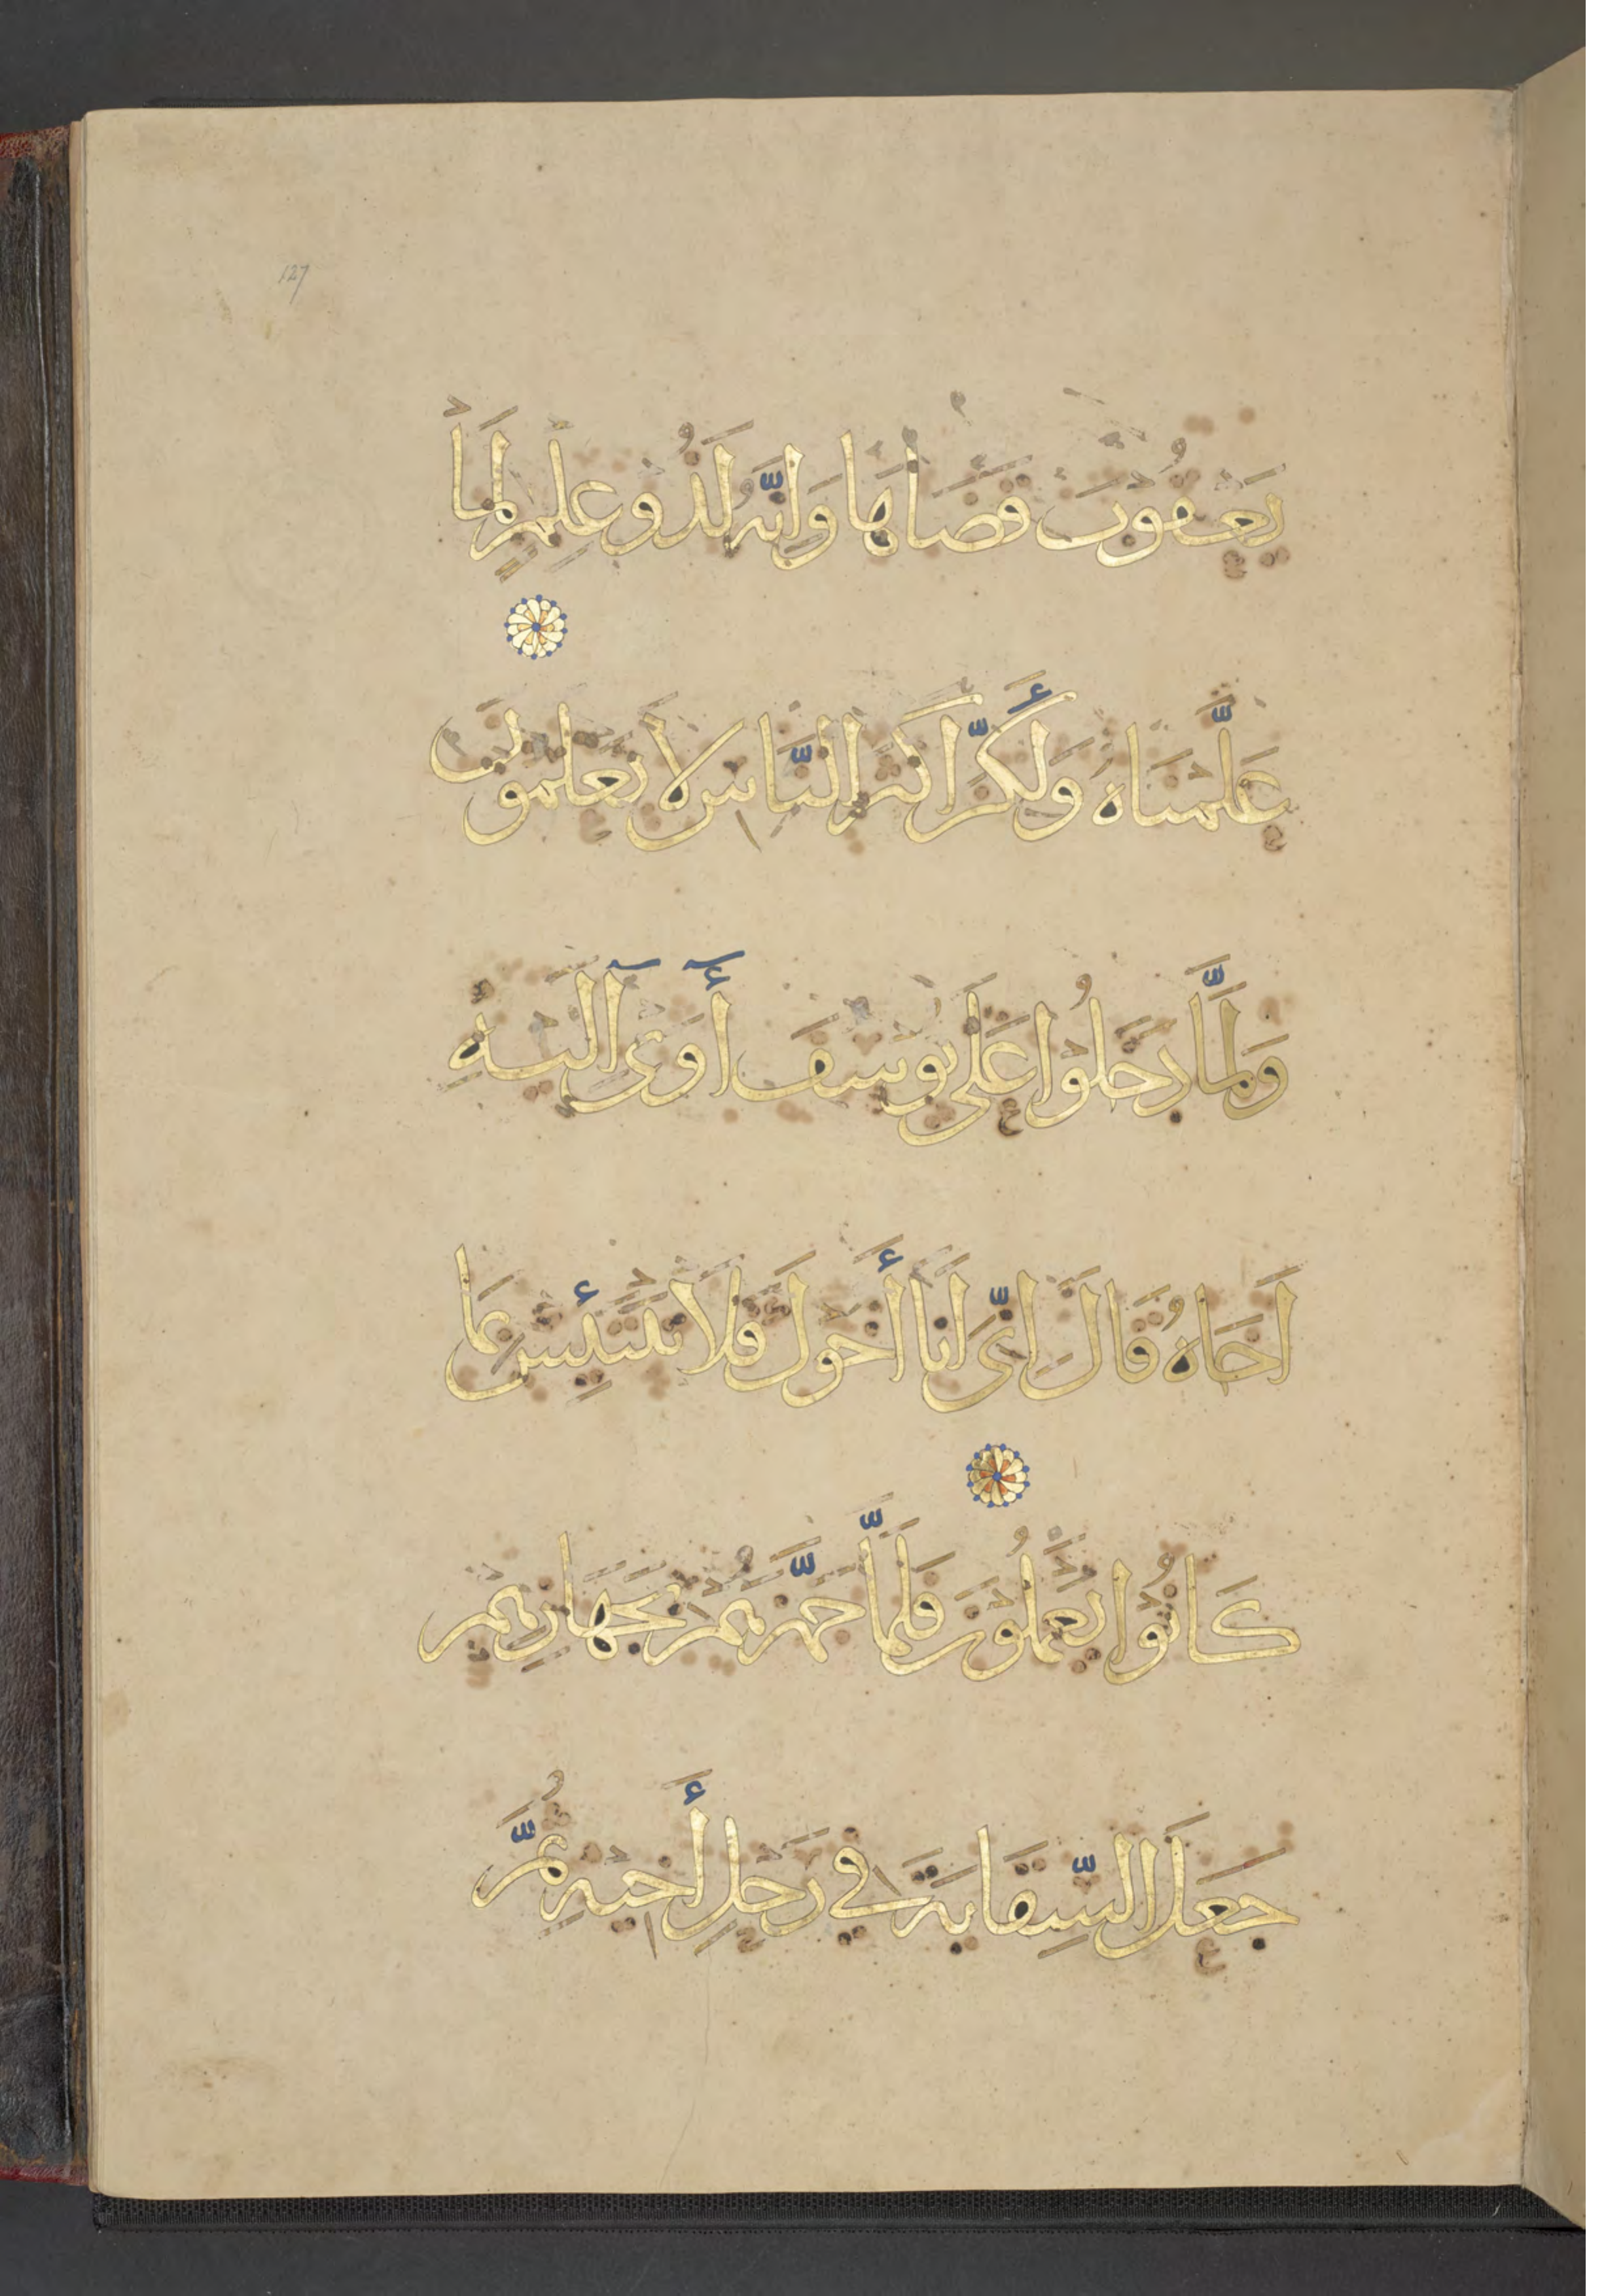 127
يَعْقُوبَ قَضَاهَا وَاِنَّهُ لَذُو عِلْمٍ لِمَا
عَلَّمْنَاهُ وَلَكِنَّ أَكْثَرَ النَّاسِ لَا يَعْلَمُونَ
وَلَمَّا دَخَلُوا عَلَى يُوسُفَ أٓوَى آلَيْهِ
اَخَاهُ قَالَ اِنِّى اَنَا أَخُوكَ فَلَا تَبْتَئِسْ بِمَا
كَانُوا يَعْمَلُونَ فَلَمَّا جَهَّزَهُمْ بِجَهَازِهِمْ
جَعَلَ السِّقَايَةَ فِي رَحْلِ أَخِيهِ ثُمَّ